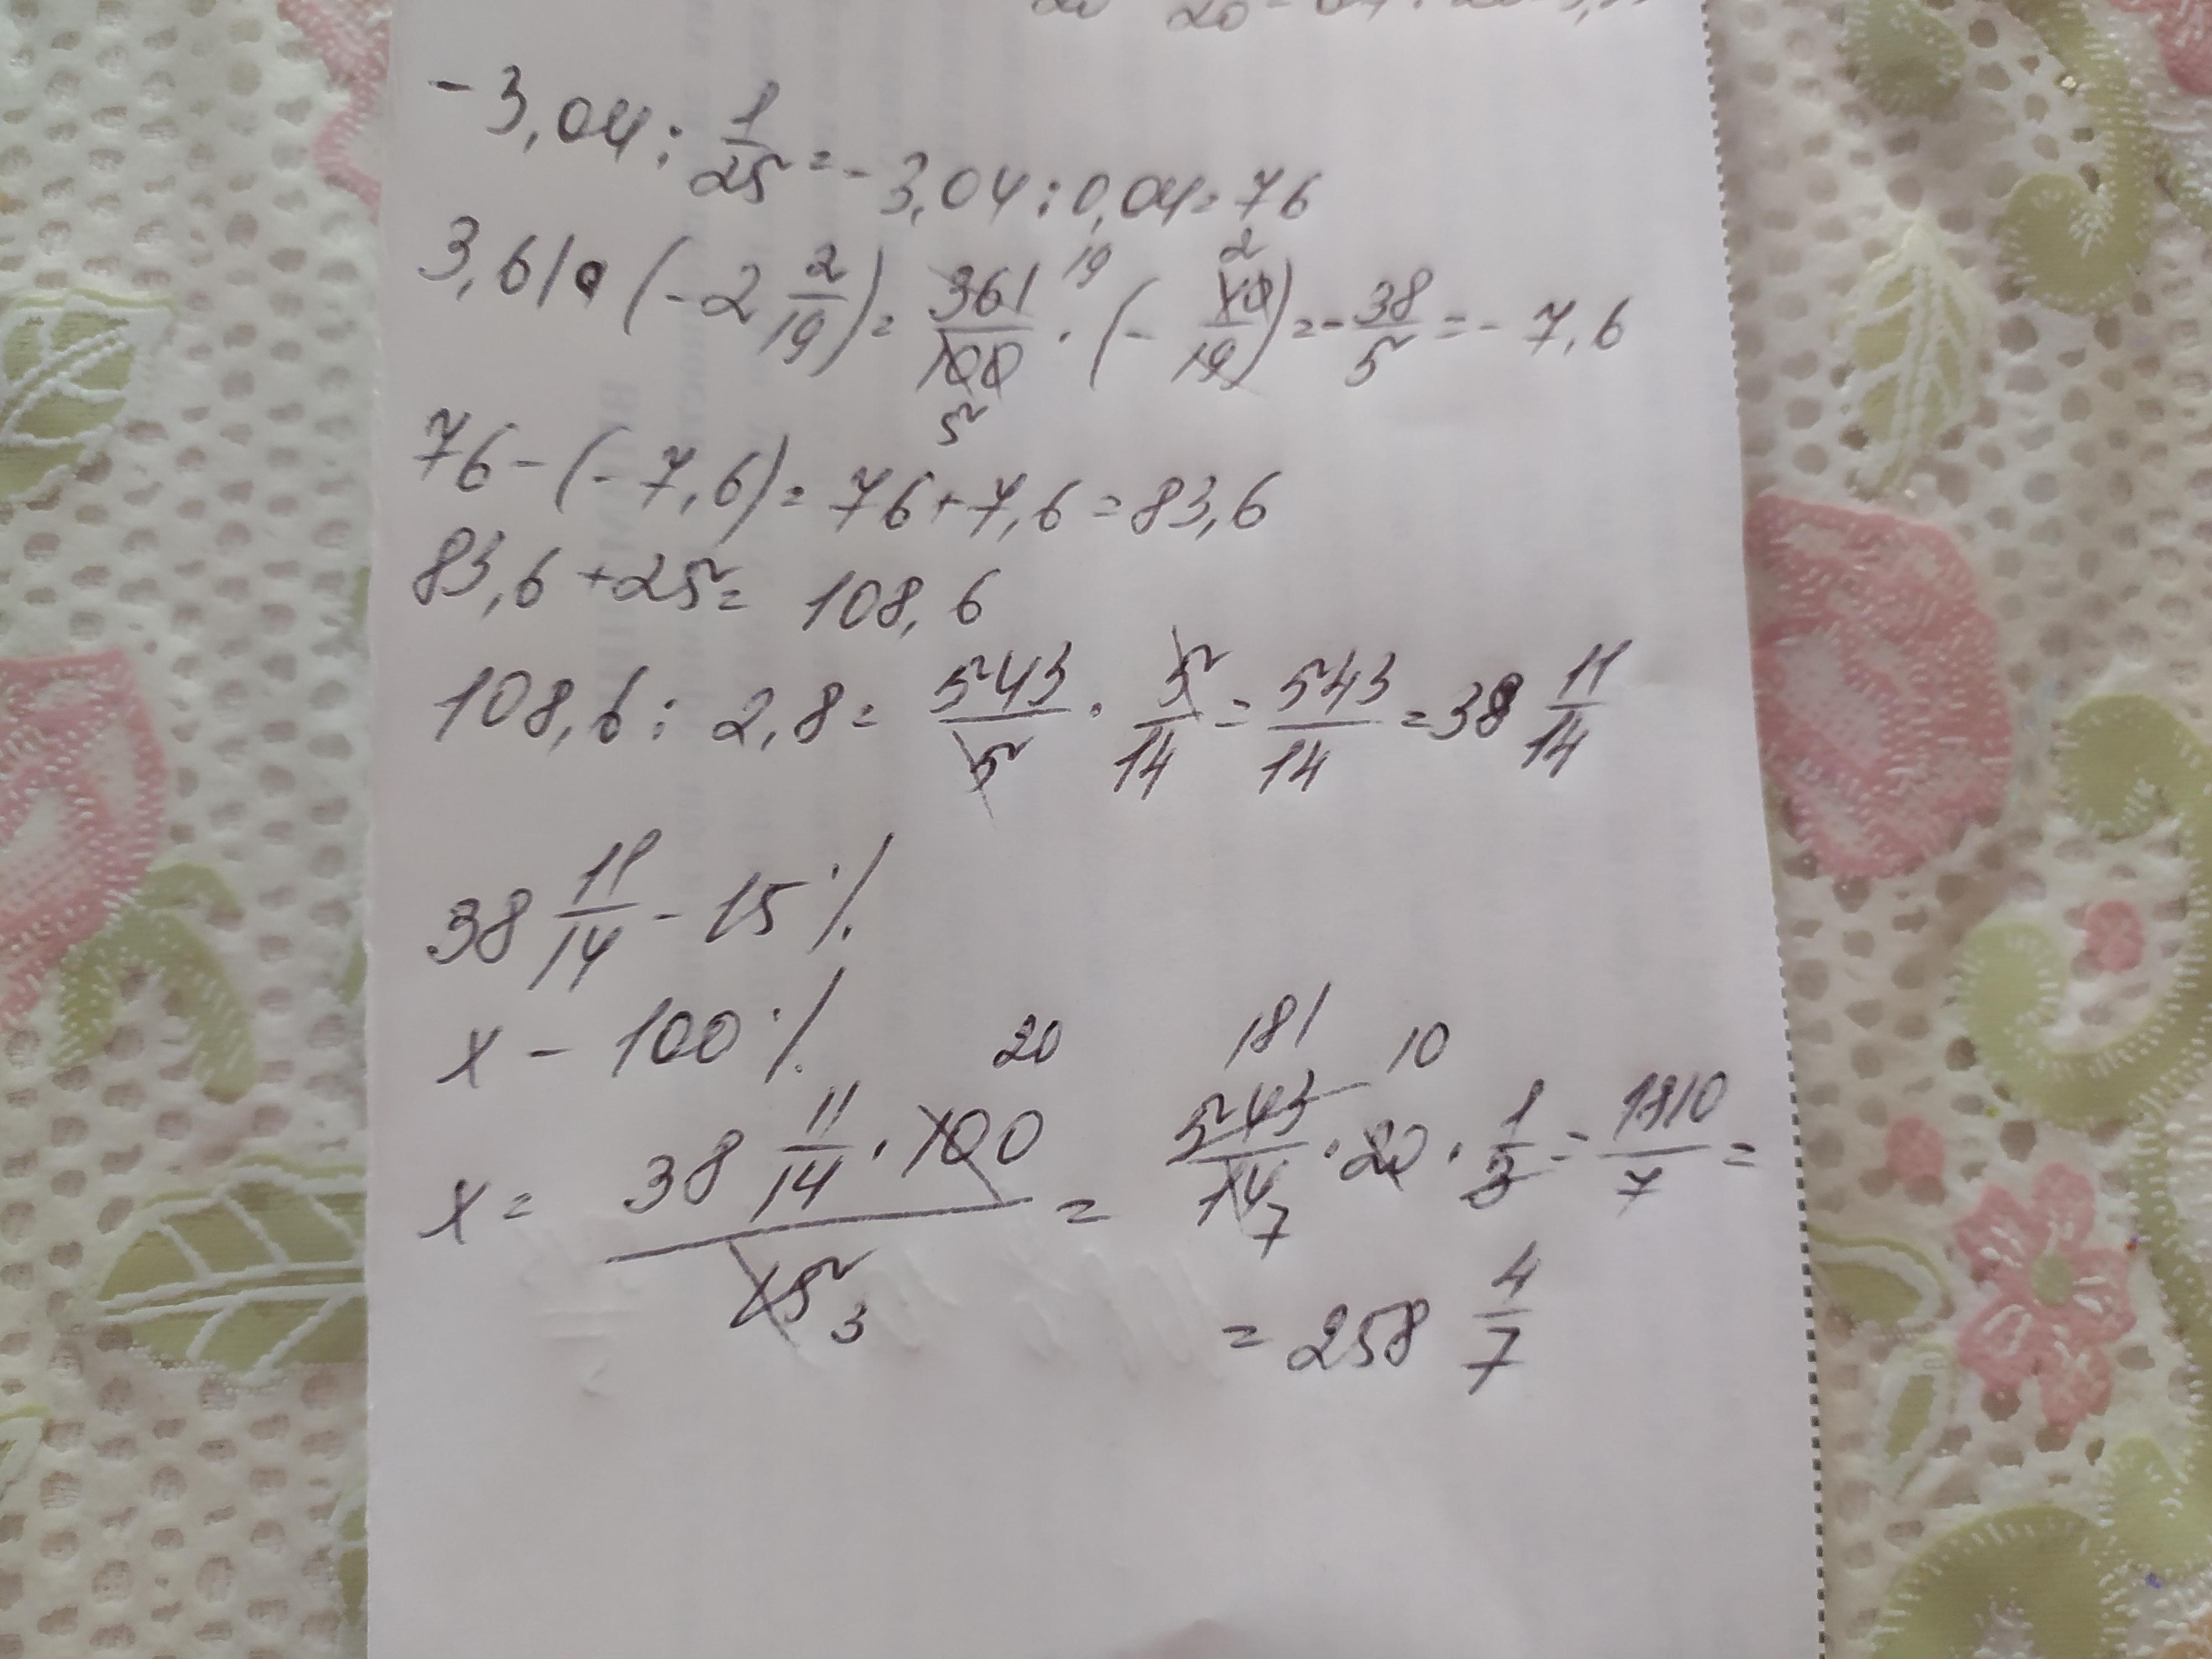 -3,04 : 1/25 = -3,04 : 0,04 = 76
3,61 · (-2 2/19) = 361/100 19 5 · (-40/19 2) = -38/5 = -7,6
76 - (-7,6) = 76 + 7,6 = 83,6
83,6 + 25 = 108,6
108,6 : 2,8 = 543/5 · 5/14 = 543/14 = 38 11/14
38 11/14 - 15%
x - 100%
x = 38 11/14 · 100 20 / 15 3 = 543/14 181 7 · 20 10 · 1/3 = 1810/7 =
= 258 4/7